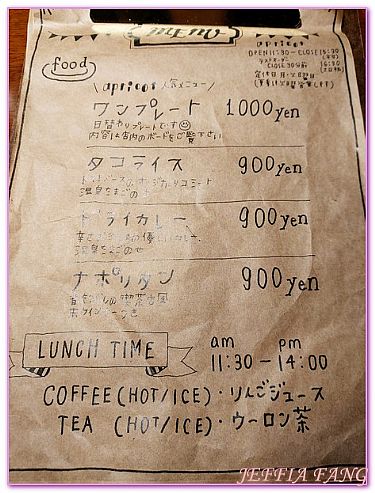 MENU
apricot
OPEN 11:30-CLOSE
food
apricot 人気メニュー
ワンプレート 1000yen
日替わりプレートです
内容は店内のボードをご覧下さい
タコライス 900yen
温泉たまごのせ
ドライカレー 900yen
温泉たまごのせ
ナポリタン 900yen
LUNCH TIME
am pm
11:30-14:00
COFFEE(HOT/ICE)・りんごジュース
TEA (HOT/ICE)・ウーロン茶
JEFFIA FANG